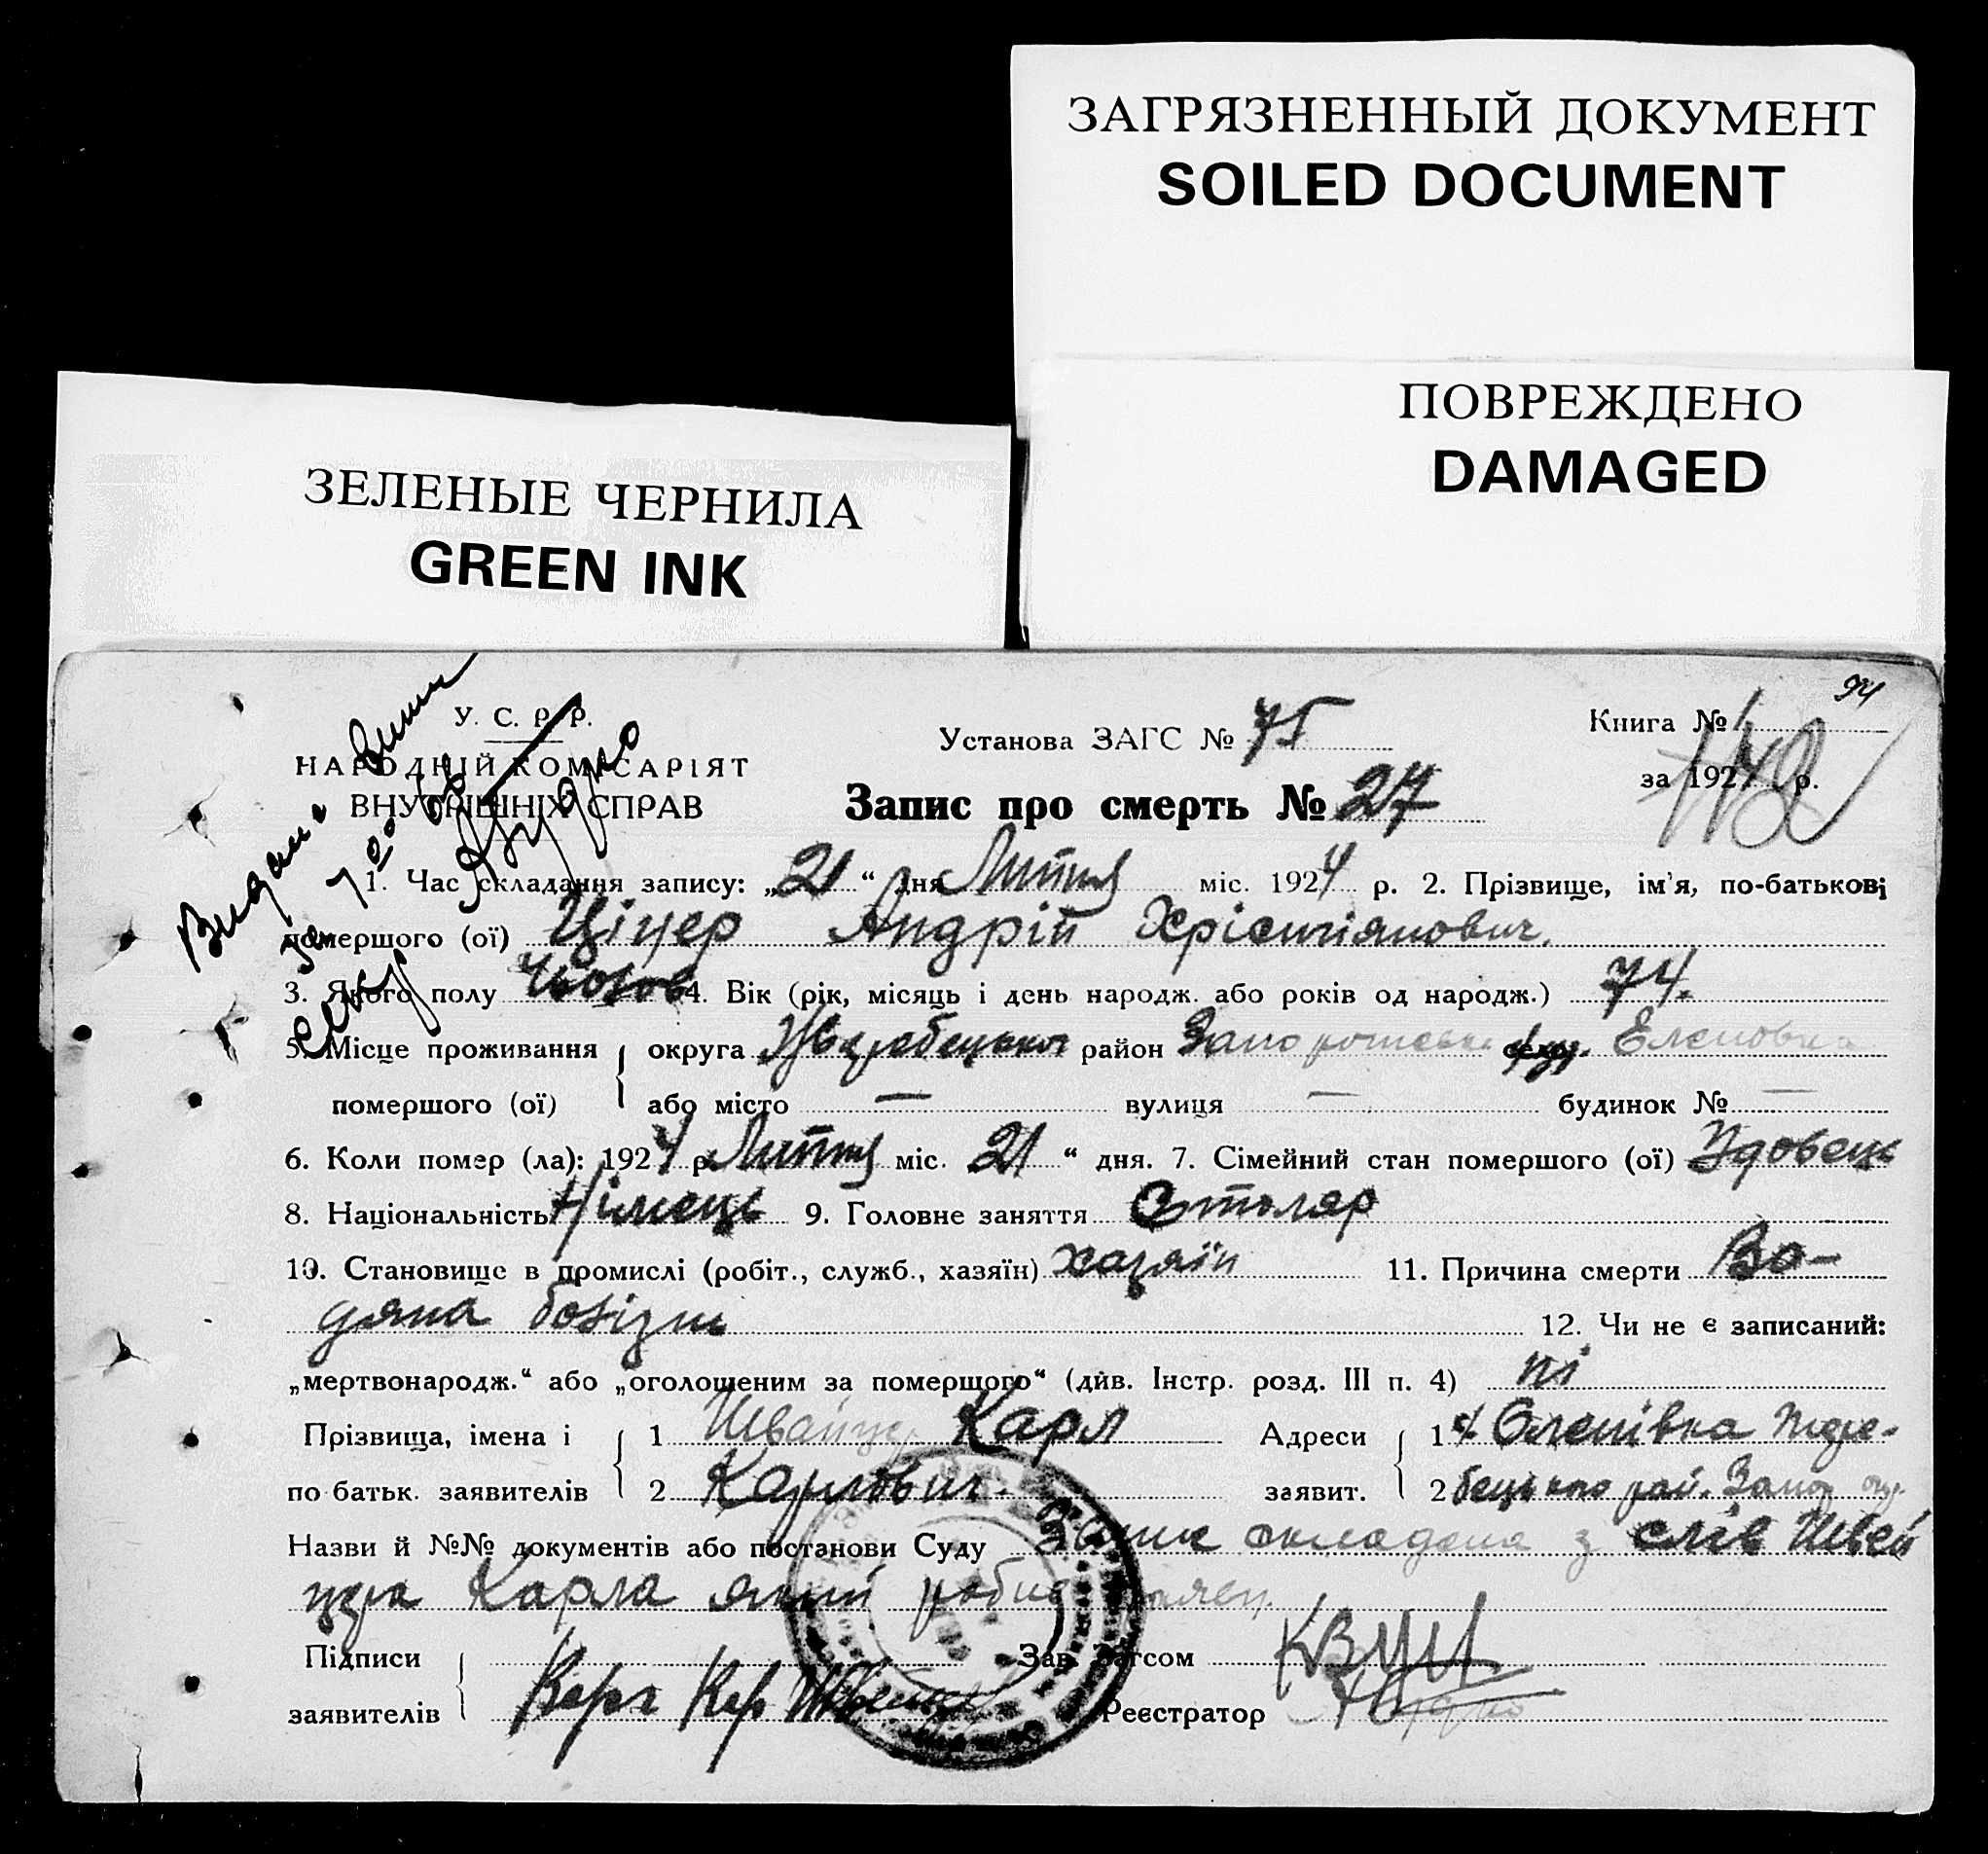 ЗАГРЯЗНЕННЫЙ ДОКУМЕНТ
SOILED DOCUMENT
ПОВРЕЖДЕНО
DAMAGED
ЗЕЛЕНЫЕ ЧЕРНИЛА
GREEN INK
94
У. С. Р. Р.
НАРОДНІЙ КОМІСАРІЯТ
ВНУТРІШНІХ СПРАВ
Установа ЗАГС № 75
Запис про смерть № 27
Книга № 1
за 1924 р.
1. Час складання запису: „21“ дня Липня міс. 1924 р. 2. Прізвище, ім'я, по-батькові
помершого (ої) Ціцер Андрій Хрістіянович.
3. Якого полу 4. Вік (рік, місяць і день народж. або років од народж.) 74.
5. Місце проживання округа район Еленовка
помершого (ої) або місто — вулиця — будинок № —
6. Коли помер (ла): 1924 р. Липня міс. 21“ дня. 7. Сімейний стан помершого (ої) Удовець
8. Національність Німець 9. Головне заняття Столяр
10. Становище в промислі (робіт., служб., хазяїн) хазяїн 11. Причина смерти Во-
дяна болізнь 12. Чи не є записаний:
„мертвонародж.“ або „оголошеним за померщого“ (див. Інстр. розд. III п. 4) ні
Прізвища, імена і 1 Швайцер Карл Адреси 1 Оленівка
по батьк. заявителів 2 Карлович. заявит. 2 рай. Запор. окр.
Назви й №№ документів або постанови Суду Запис складена з слів Швей
цера Карла який
Підписи Зав. Загсом
заявителів Карл Кар Реєстратор